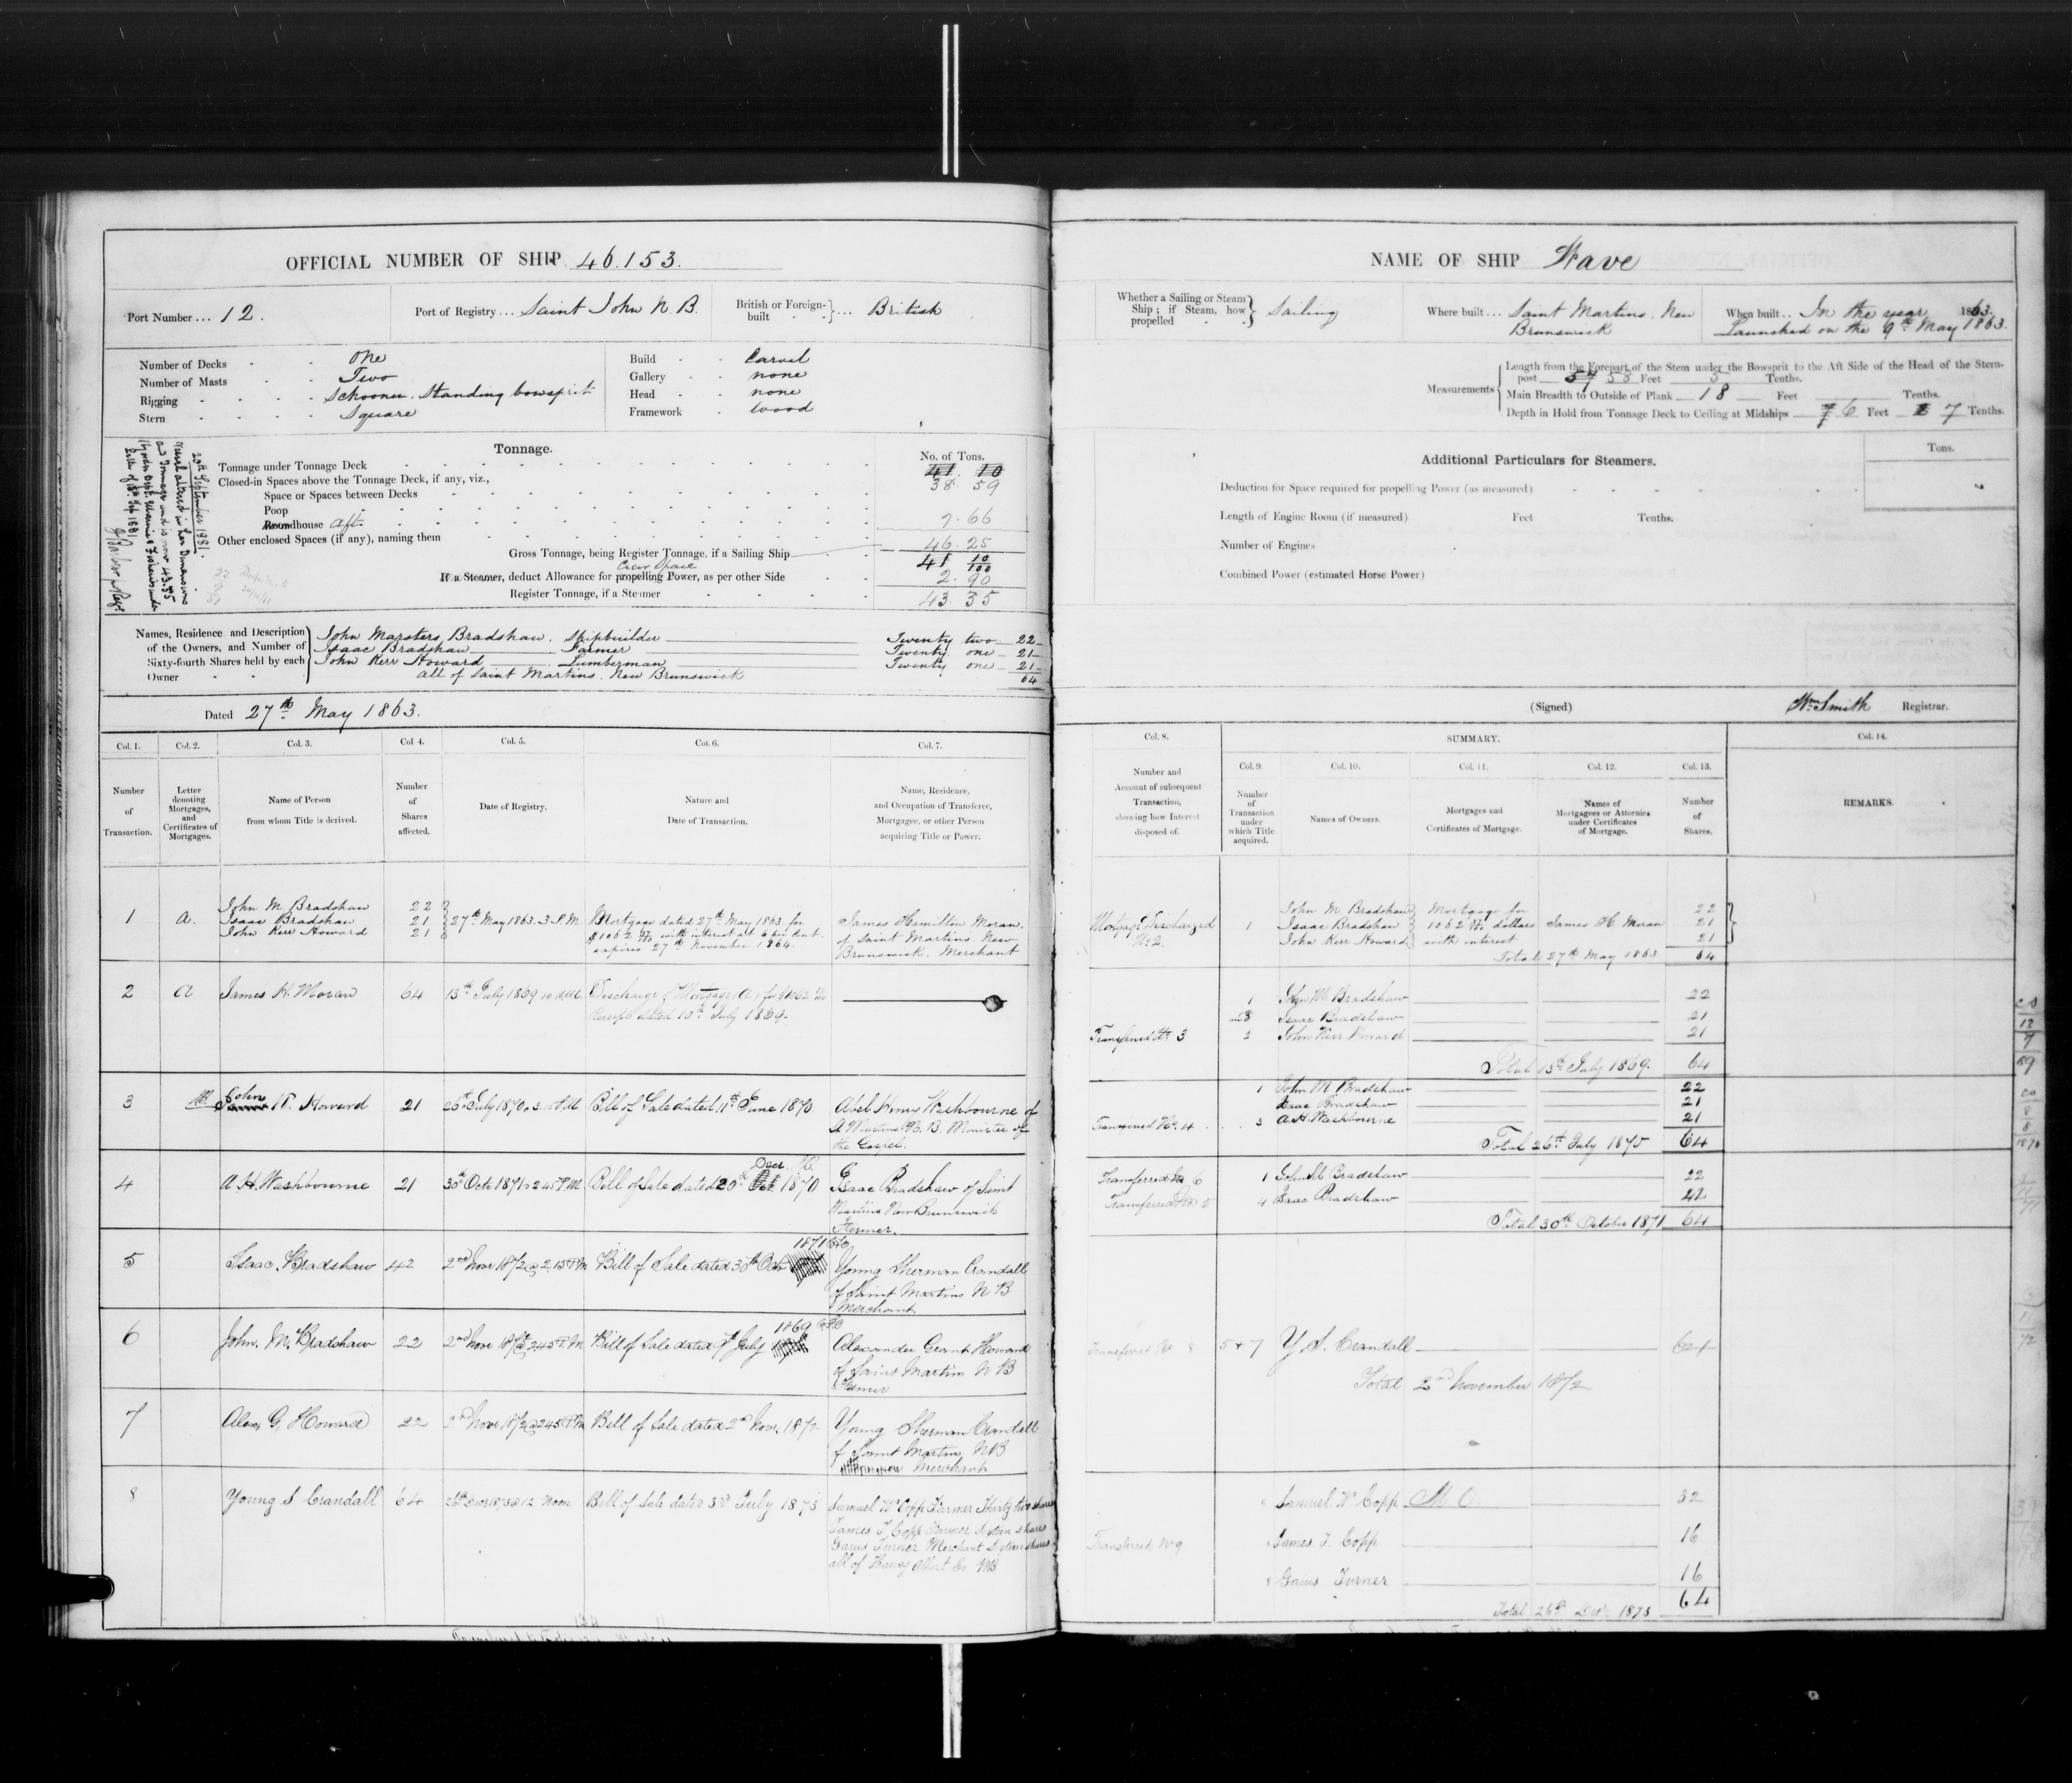 OFFICIAL NUMBER OF SHIP 46.153.
Port Number ... 12.
Port of Registry ... Saint John N. B.
British or Foreign-built ... British
Number of Decks - - One
Number of Masts - - Two
Rigging - - - - Schooner. Standing bowsprit
Stern - - - - Square
Build - - Carvel
Gallery - - none
Head - - none
Framework - Wood
29th September 1881.
Vessel altered in her Dimensions
and Tonnage and is now 43.35
Tonnage.
No. of Tons.
Tonnage under Tonnage Deck 41. 10
Closed-in Spaces above the Tonnage Deck, if any, viz., 38. 59
Space or Spaces between Decks
Poop
Roundhouse aft 7.66
Other enclosed Spaces (if any), naming them
46.25
Gross Tonnage, being Register Tonnage, if a Sailing Ship 41 10/100
Crew Space
If a Steamer, deduct Allowance for propelling Power, as per other Side 2.90
Register Tonnage, if a Steamer 43.35
Names, Residence and Description of the Owners, and Number of Sixty-fourth Shares held by each Owner
John Marsters Bradshaw. Shipbuilder Twenty two 22
Isaac Bradshaw Farmer Twenty one 21
John Kerr Howard Lumberman Twenty one 21
all of Saint Martins. New Brunswick 64
Dated 27th May 1863.
Col. 1. Col. 2. Col. 3. Col 4. Col. 5. Col. 6. Col. 7.
Number of Transaction.
Letter denoting Mortgages, and Certificates of Mortgages.
Name of Person from whom Title is derived.
Number of Shares affected.
Date of Registry.
Nature and Date of Transaction.
Name, Residence, and Occupation of Transferee, Mortgagee, or other Person acquiring Title or Power.
1 A. John M. Bradshaw 22
Isaac Bradshaw 21
John Kerr Howard 21
27th May 1863. 3 P.M.
Mortgage dated 27th May 1863 for
$1062 with interest at 6 per Cent.
expires 27th November 1864.
James Hamilton Moran.
of Saint Martins. New
Brunswick. Merchant
2 A James H. Moran 64 13th July 1869 10
Discharge of Mortgage A
Receipt dated 10th July 1869.
3 John K. Howard 21 26th July 1870 3 P.M.
Bill of Sale dated 11th June 1870
Abel Henry Washbourne of
St Martins N. B. Minister of
the Gospel.
4 A. H. Washbourne 21 30th Octr 1871 2 45 P.M
Bill of Sale dated 20th Decr 1870
Isaac Bradshaw of Saint
Martins New Brunswick
Farmer.
5 Isaac Bradshaw 42 2nd Novr 1872 @ 2.15 P.M
Bill of Sale dated 30th Octr 1871
Young Sherman Crandall
of Saint Martins N B
Merchant.
6 John. M. Bradshaw 22 2nd Novr 1872 2 45 P.M
Bill of Sale dated July 1869
Alexander Grant Howard
of Saint Martins N B
Farmer
7 Alex G. Howard 22 2nd Novr 1872 @ 2 45 P.M
Bill of Sale dated 2nd Novr. 1872
Young Sherman Crandall
of Saint Martins N B
Merchant
8 Young S Crandall 64 26th Decr 1873 @ 12 Noon
Bill of Sale dated 3rd July 1873
Samuel W Copp Farmer Thirty two shares
James T. Copp Farmer Sixteen shares
Gaius Turner Merchant Sixteen shares
all of Harvey Albert Co NB
NAME OF SHIP Wave
Whether a Sailing or Steam Ship; if Steam, how propelled - - Sailing
Where built ... Saint Martins. New
Brunswick
When built .. In the year 1863.
Launched on the 9th May 1863.
Measurements
Length from the Forepart of the Stem under the Bowsprit to the Aft Side of the Head of the Stern-
post 58 Feet 5 Tenths.
Main Breadth to Outside of Plank 18 Feet Tenths.
Depth in Hold from Tonnage Deck to Ceiling at Midships 6 Feet 7 Tenths.
Additional Particulars for Steamers.
Tons.
Deduction for Space required for propelling Power (as measured)
Length of Engine Room (if measured) Feet Tenths.
Number of Engines
Combined Power (estimated Horse Power)
(Signed) Wm Smith Registrar.
Col. 8. SUMMARY. Col. 14.
Col. 9. Col. 10. Col. 11. Col. 12. Col. 13.
Number and Account of subsequent Transaction, showing how Interest disposed of.
Number of Transaction under which Title acquired.
Names of Owners.
Mortgages and Certificates of Mortgage.
Names of Mortgagees or Attornies under Certificates of Mortgage.
Number of Shares.
REMARKS.
Mortgage Discharged
No 2.
1 John M. Bradshaw Mortgage for 22
Isaac Bradshaw 1062 dollars James H. Moran 21
John Kerr Howard with interest 21
Total 27th May 1863 64
1 John M. Bradshaw 22
Isaac Bradshaw 21
Transferred No 3
John Kerr Howard 21
Total 13th July 1869. 64
1 John M Bradshaw 22
Isaac Bradshaw 21
Transferred No. 4 3 A. H. Washbourne 21
Total 26th July 1870 64
Transferred No 6 1 John M Bradshaw 22
Transferred No 5 4 Isaac Bradshaw 42
Total 30th October 1871 64
Transferred No 8 5 & 7 Y. S. Crandall 64
Total 2nd November 1872
8 Samuel W. Copp M. O. 32
Transferred No 9
8 James T. Copp 16
8 Gaius Turner 16
Total 26th Decr. 1873 64